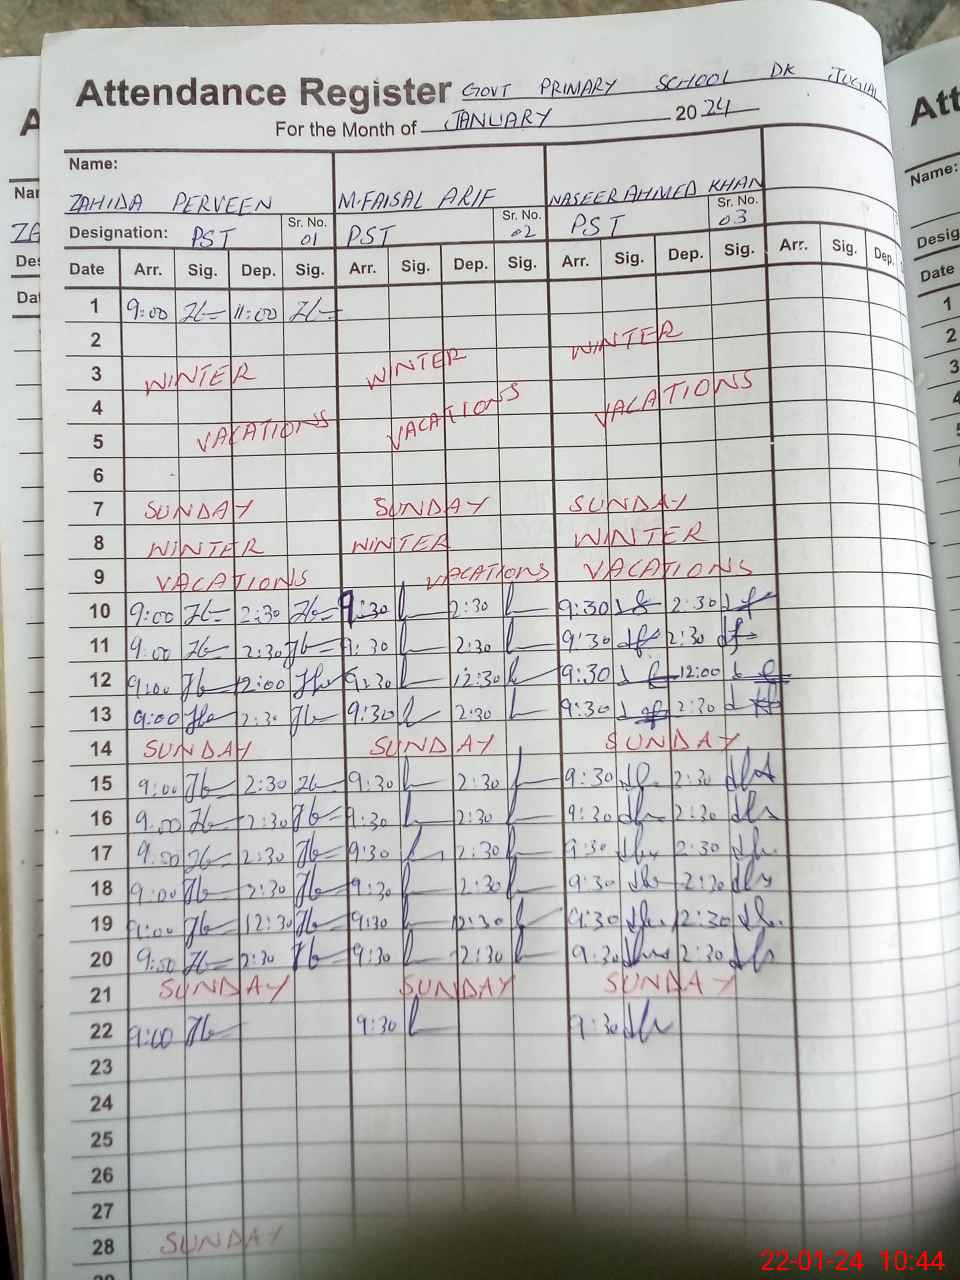 Attendance Register GOVT PRIMARY SCHOOL DK
For the Month of JANUARY 2024
Name:
ZAHIDA PERVEEN M.FAISAL ARIF NASEER AHMED KHAN
Designation: PST Sr. No. 01 PST Sr. No. 02 PST Sr. No. 03
Date Arr. Sig. Dep. Sig. Arr. Sig. Dep. Sig. Arr. Sig. Dep. Sig. Arr. Sig. Dep.
1 9:00 11:00
2 WINTER
3 WINTER WINTER
4 VACATIONS VACATIONS
5 VACATIONS
6
7 SUNDAY SUNDAY SUNDAY
8 WINTER WINTER WINTER
9 VACATIONS VACATIONS VACATIONS
10 9:00 2:30 9:30 2:30 9:30 2:30
11 9:00 2:30 9:30 2:30 9:30 2:30
12 9:00 12:00 9:30 12:30 9:30 12:00
13 9:00 2:30 9:30 2:30 9:30 2:30
14 SUNDAY SUNDAY SUNDAY
15 9:00 2:30 9:30 2:30 9:30 2:30
16 9:00 2:30 9:30 2:30 9:30 2:30
17 9:00 2:30 9:30 2:30 9:30 2:30
18 9:00 2:30 9:30 2:30 9:30 2:30
19 9:00 12:30 9:30 12:30 9:30 12:30
20 2:30 9:30 2:30 9:30 2:30
21 SUNDAY SUNDAY SUNDAY
22 9:00 9:30 9:30
23
24
25
26
27
28 SUNDAY
Name:
Date
1
2
3
22-01-24 10:44